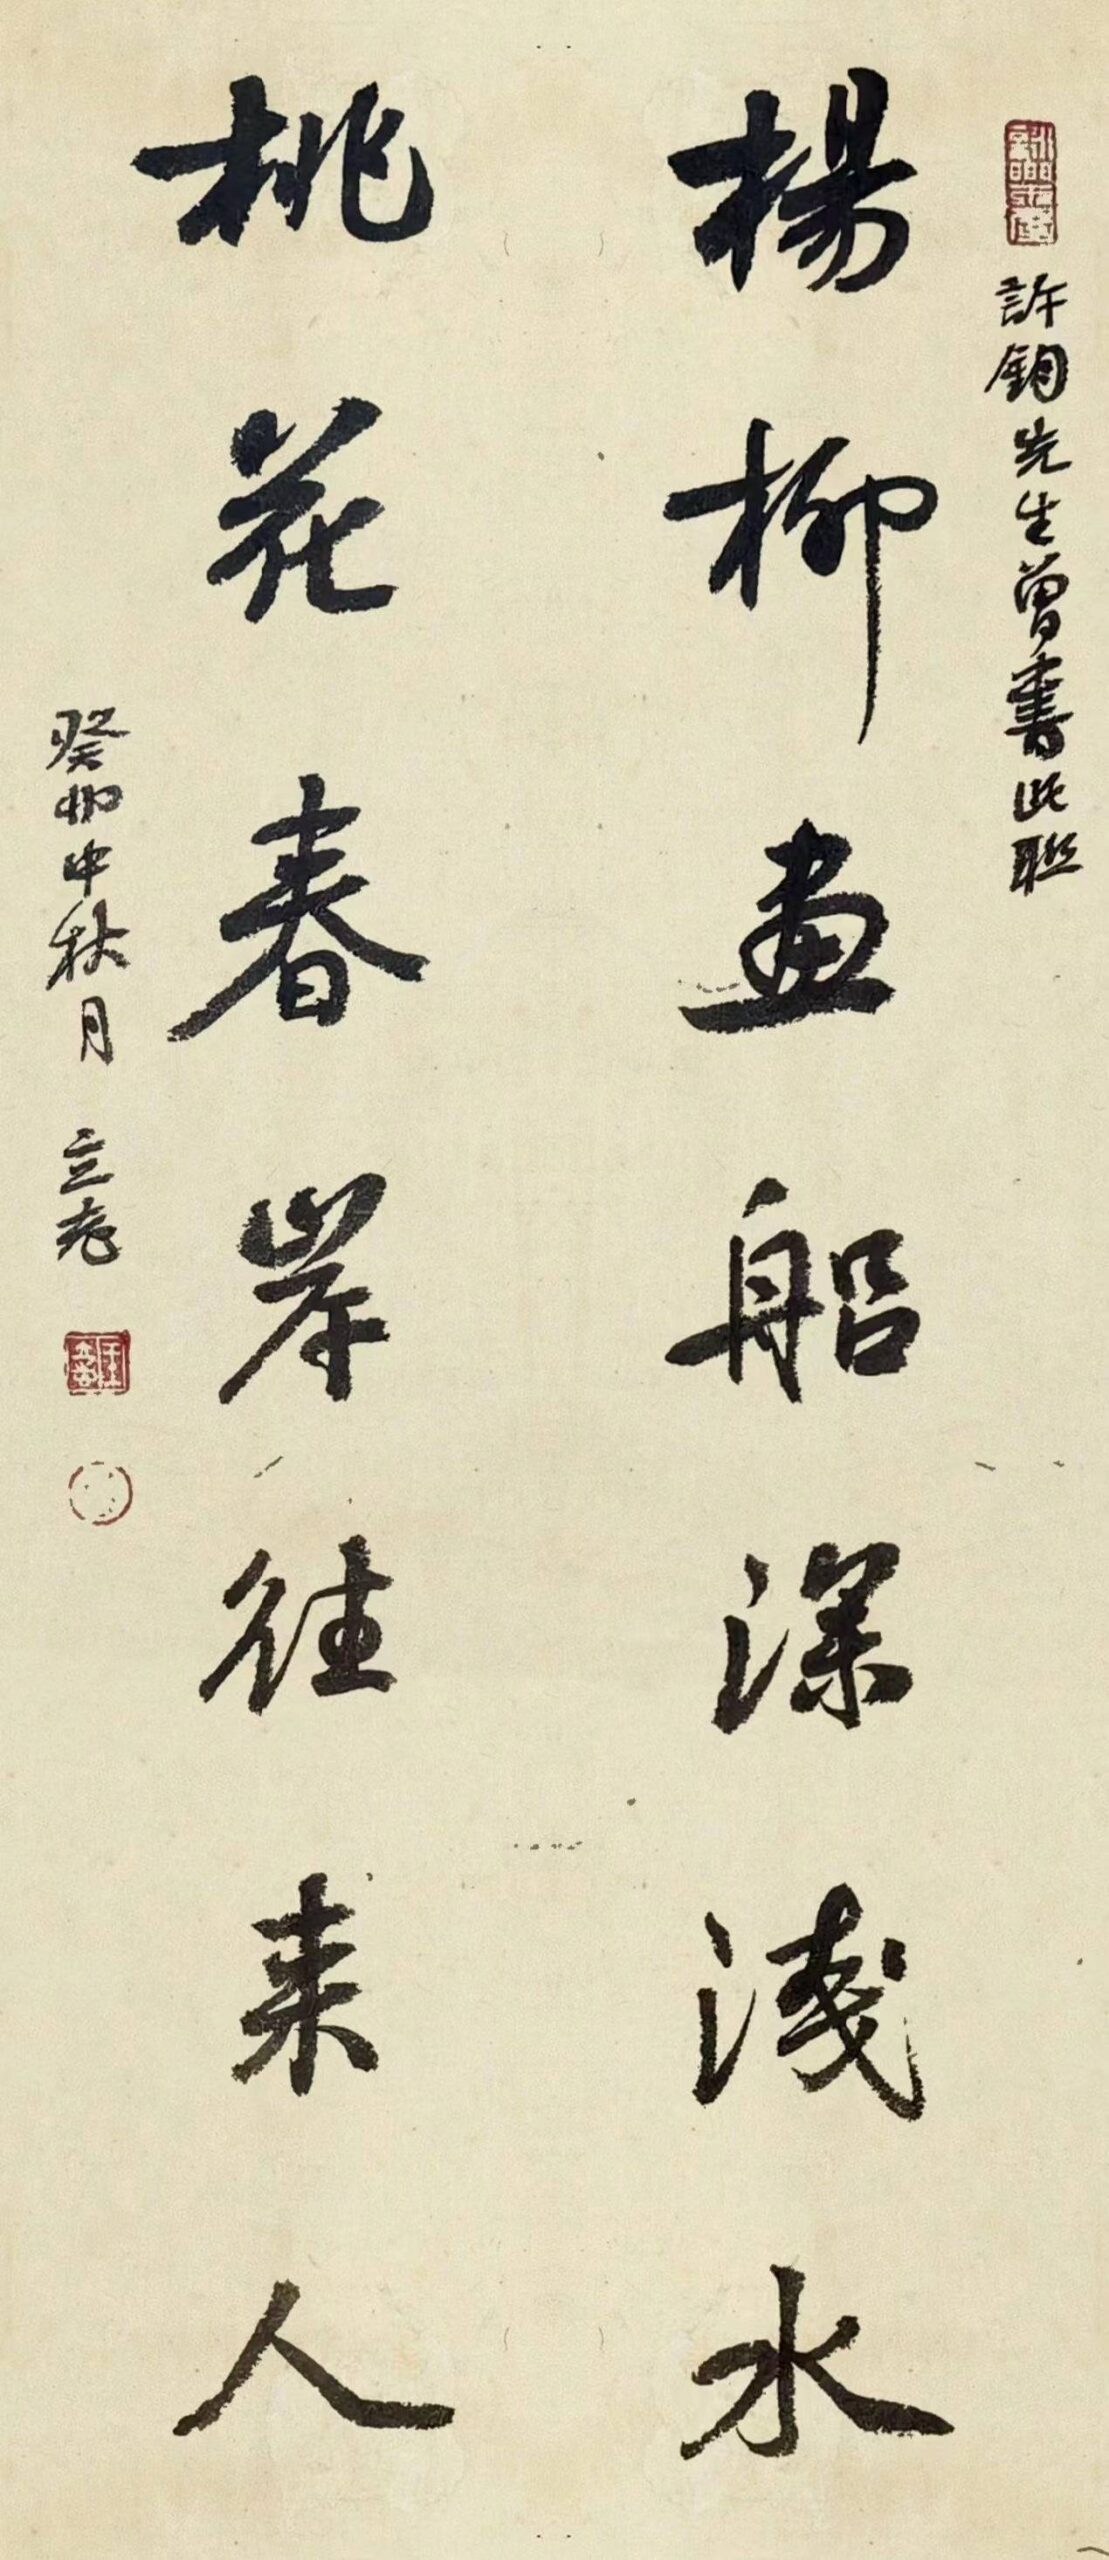 許鈞先生曾書此联
楊柳画船深淺水
桃花春岸往来人
癸卯中秋月 立彪